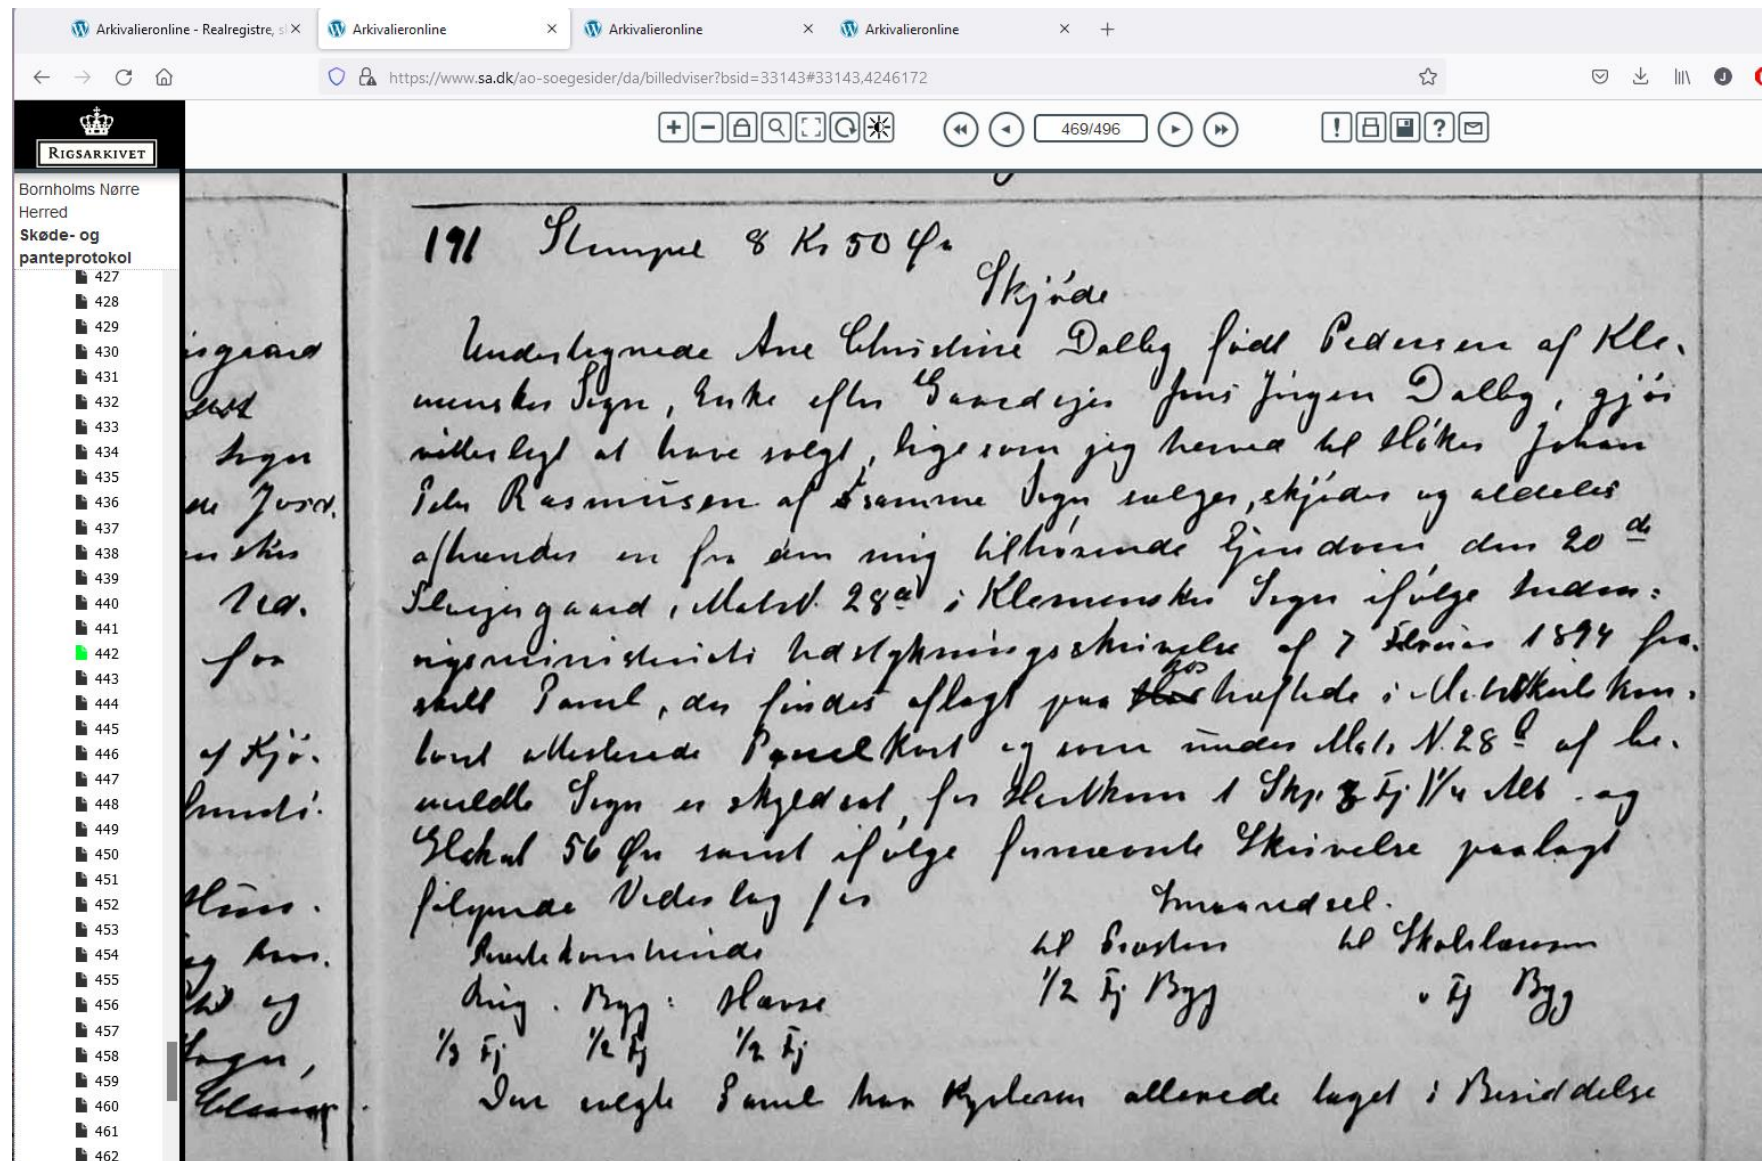 Arkivalieronline - Realregistre, s
Arkivalieronline
Arkivalieronline
Arkivalieronline
https://www.sa.dk/ao-soegesider/da/billedviser?bsid=33143#33143,4246172
J
RIGSARKIVET
469/496
Bornholms Nørre
Herred
Skøde- og
panteprotokol
427
428
429
430
431
432
433
434
435
436
437
438
439
440
441
442
443
444
445
446
447
448
449
450
451
452
453
454
455
456
457
458
459
460
461
462
sgaard
Sogn
de Jord.
for
af Kjø.
og
Sogn,
191 Stempel 8 Kr 50 Øre
Skjøde
Undertegnede Ane Christine Dalby født Pedersen af Kle-
mensker Sogn, Enke efter Gaardejer Jens Jørgen Dalby, gjør
vitterligt at have solgt, ligesom jeg herved til Høker Johan
Peter Rasmusen af samme Sogn sælger, skjøder og aldeles
afhænder en fra den mig tilhørende Ejendom den 20 de
Slvejergaard, Matr N. 28 a i Klemensker Sogn ifølge Inden=
rigsministeriets Udstykningsskrivelse af 7 Februar 1894 fra-
skilt Parcel, der findes aflagt paa hos hæftede i Matrikulskon-
toret attesterede Parcelkort og som under Matr N. 28 af be-
meldte Sogn er skyldsat for Hartkorn 1 Skp. 3 Fj 1 1/4 Alb. og
Glskat 56 Øre samt ifølge fornævnte Skrivelse paalagt
følgende Vederlag for Smaaredsel.
Præstekorntiende til Præsten til Skolelæreren
Rug. Byg: Havre 1/2 Fj Byg " Fj Byg
1/3 Fj 1/2 Fj 1/2 Fj
Den solgte Parcel har Kjøberen allerede taget i Besiddelse